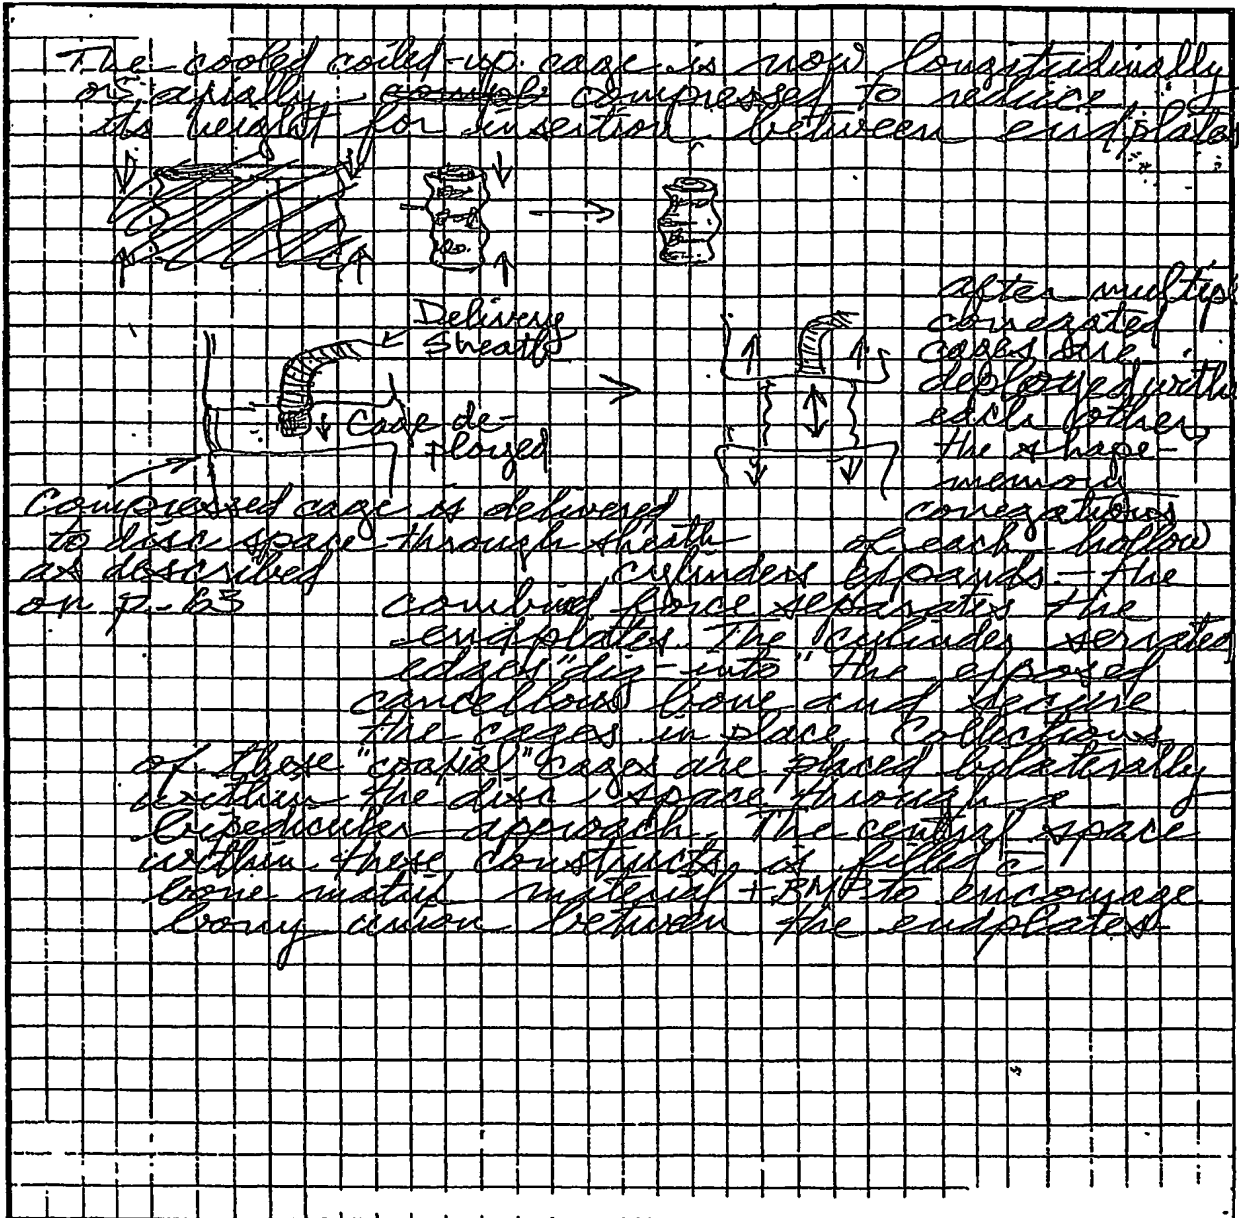 The cooled coiled-up cage is now longitudinally
or axially compressed to reduce
its height for insertion between endplates
Delivery
Sheath
Cage de-
ployed
Compressed cage is delivered
to disc space through sheath
as described
on p-63
after multiple
conegated
cages are
deployed with
each other,
the shape-
memory
conegations
of each hollow
cylinders expands - the
combined force separates the
endplates. The cylinder serrated
edges "dig-into" the exposed
cancellous bone and secure
the cages in place. Collections
of these "coaxial" cages are placed bilaterally
within the disc space through a
bipedicular approach. The central space
within these constructs is filled c̄
bone matrix material + BMP to encourage
bony union between the endplates-